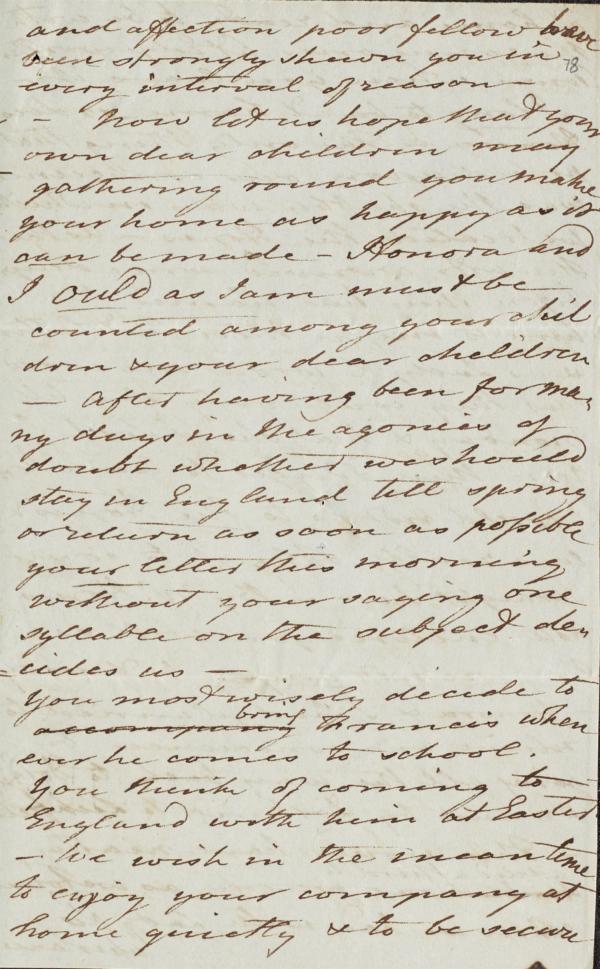 and affection poor fellow have
been strongly shewn you in
78
every interval of reason —
— Now let us hope that your
own dear children may
gathering round you make
your home as happy as it
can be made — Honora and
I ould as I am must be
counted among your chil
dren & your dear children
— After having been for ma-
ny days in the agonies of
doubt whether we should
stay in England till spring
or return as soon as possible
your letter this morning
without your saying one
syllable on the subject de-
=cides us —
You most wisely decide to
accompany bring Francis when
ever he comes to school.
You think of coming to
England with him at Easter
— We wish in the mean time
to enjoy your company at
home quietly & to be secure